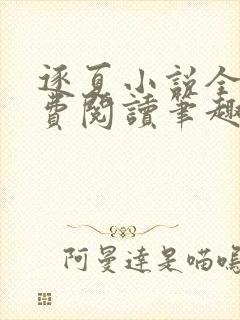 逐夏小說全
費閱讀筆趣
阿曼達是喵嗚